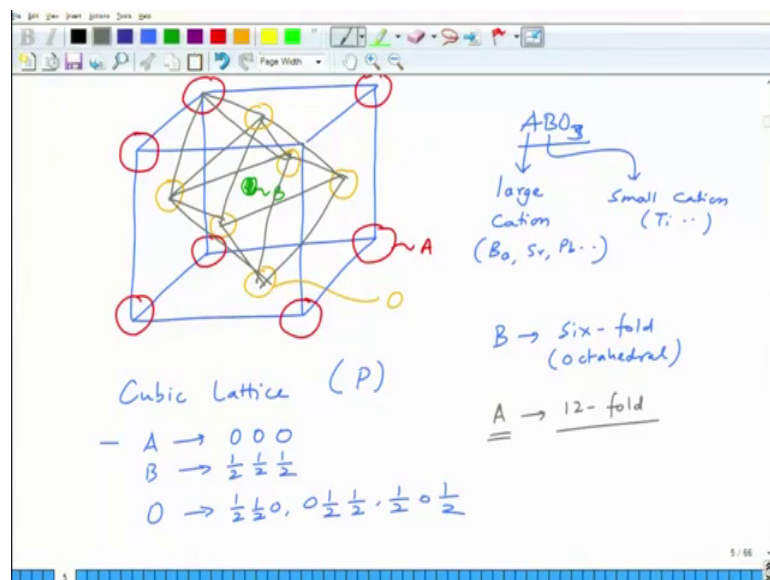 File Edit View Insert Actions Tools Help
Page Width
ABO₃
large cation
(Ba, Sr, Pb..)
Small Cation
(Ti ..)
B
A
O
B → Six-fold
(octahedral)
A → 12-fold
Cubic Lattice (P)
- A → 0 0 0
B → 1/2 1/2 1/2
O → 1/2 1/2 0, 0 1/2 1/2, 1/2 0 1/2
5 / 66
5